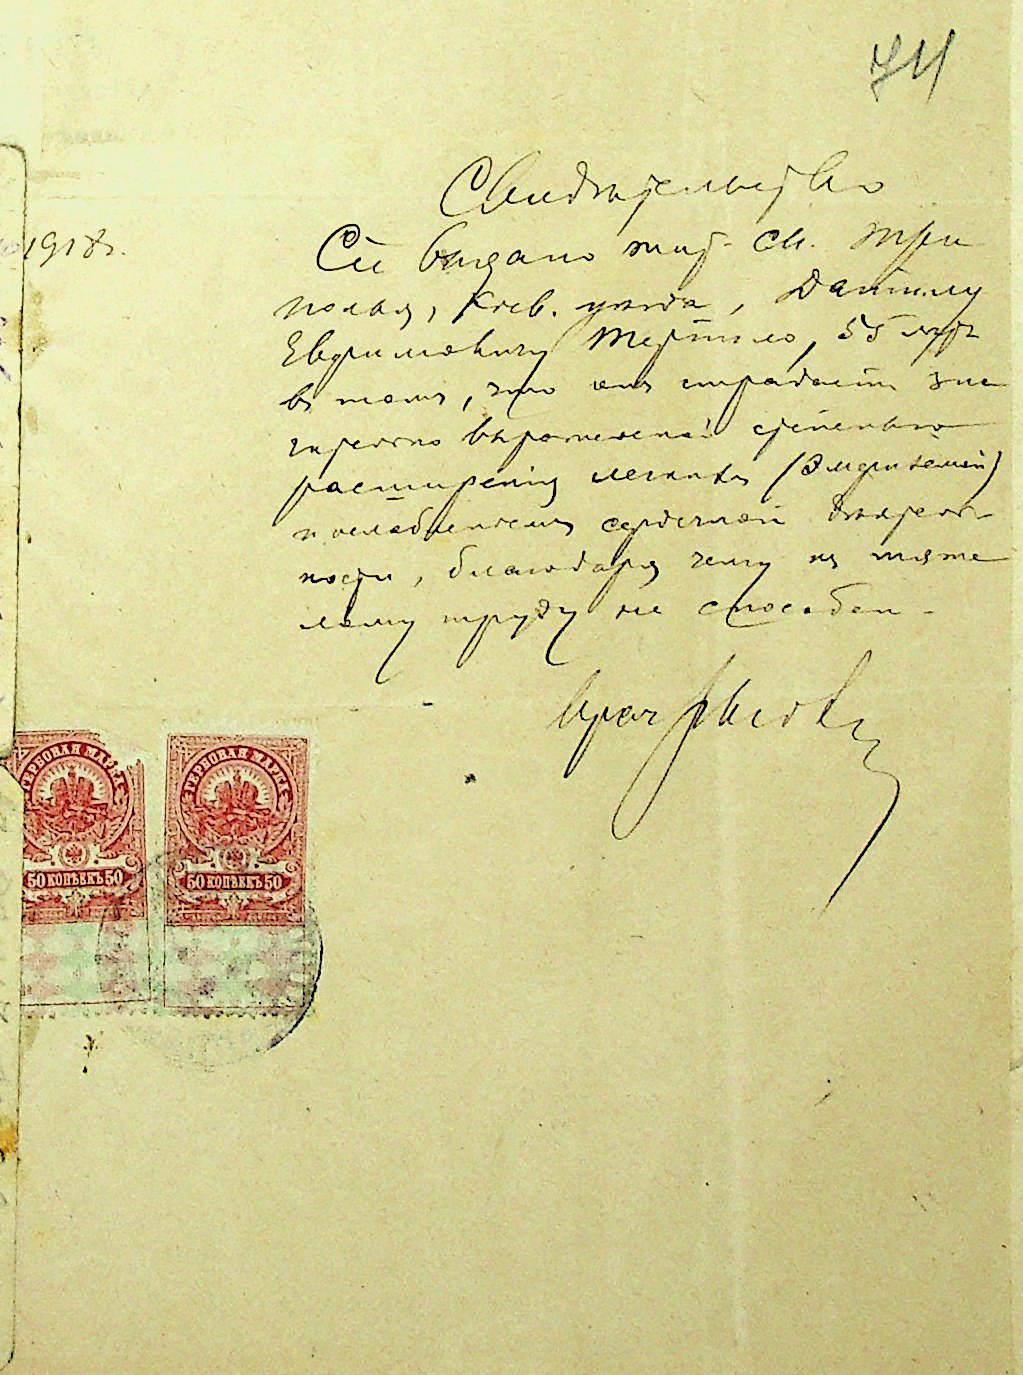 74
Свидѣтельство
1918г.
Сіе выдано жит. с. Три
полья, Кіев. уѣзда, Даніилу
Евфимовичу Терпило, 55 лѣтъ
въ томъ, что онъ страдаетъ зна
чительно выраженной степенью
расширенія легкихъ (Эмфиземой)
и ослабленіемъ сердечной дѣятель-
ности, благодаря чему къ тяже
лому труду не способен.
Врач
ГЕРБОВАЯ МАРКА
50 КОПѢЕКЪ 50
ГЕРБОВАЯ МАРКА
50 КОПѢЕКЪ 50